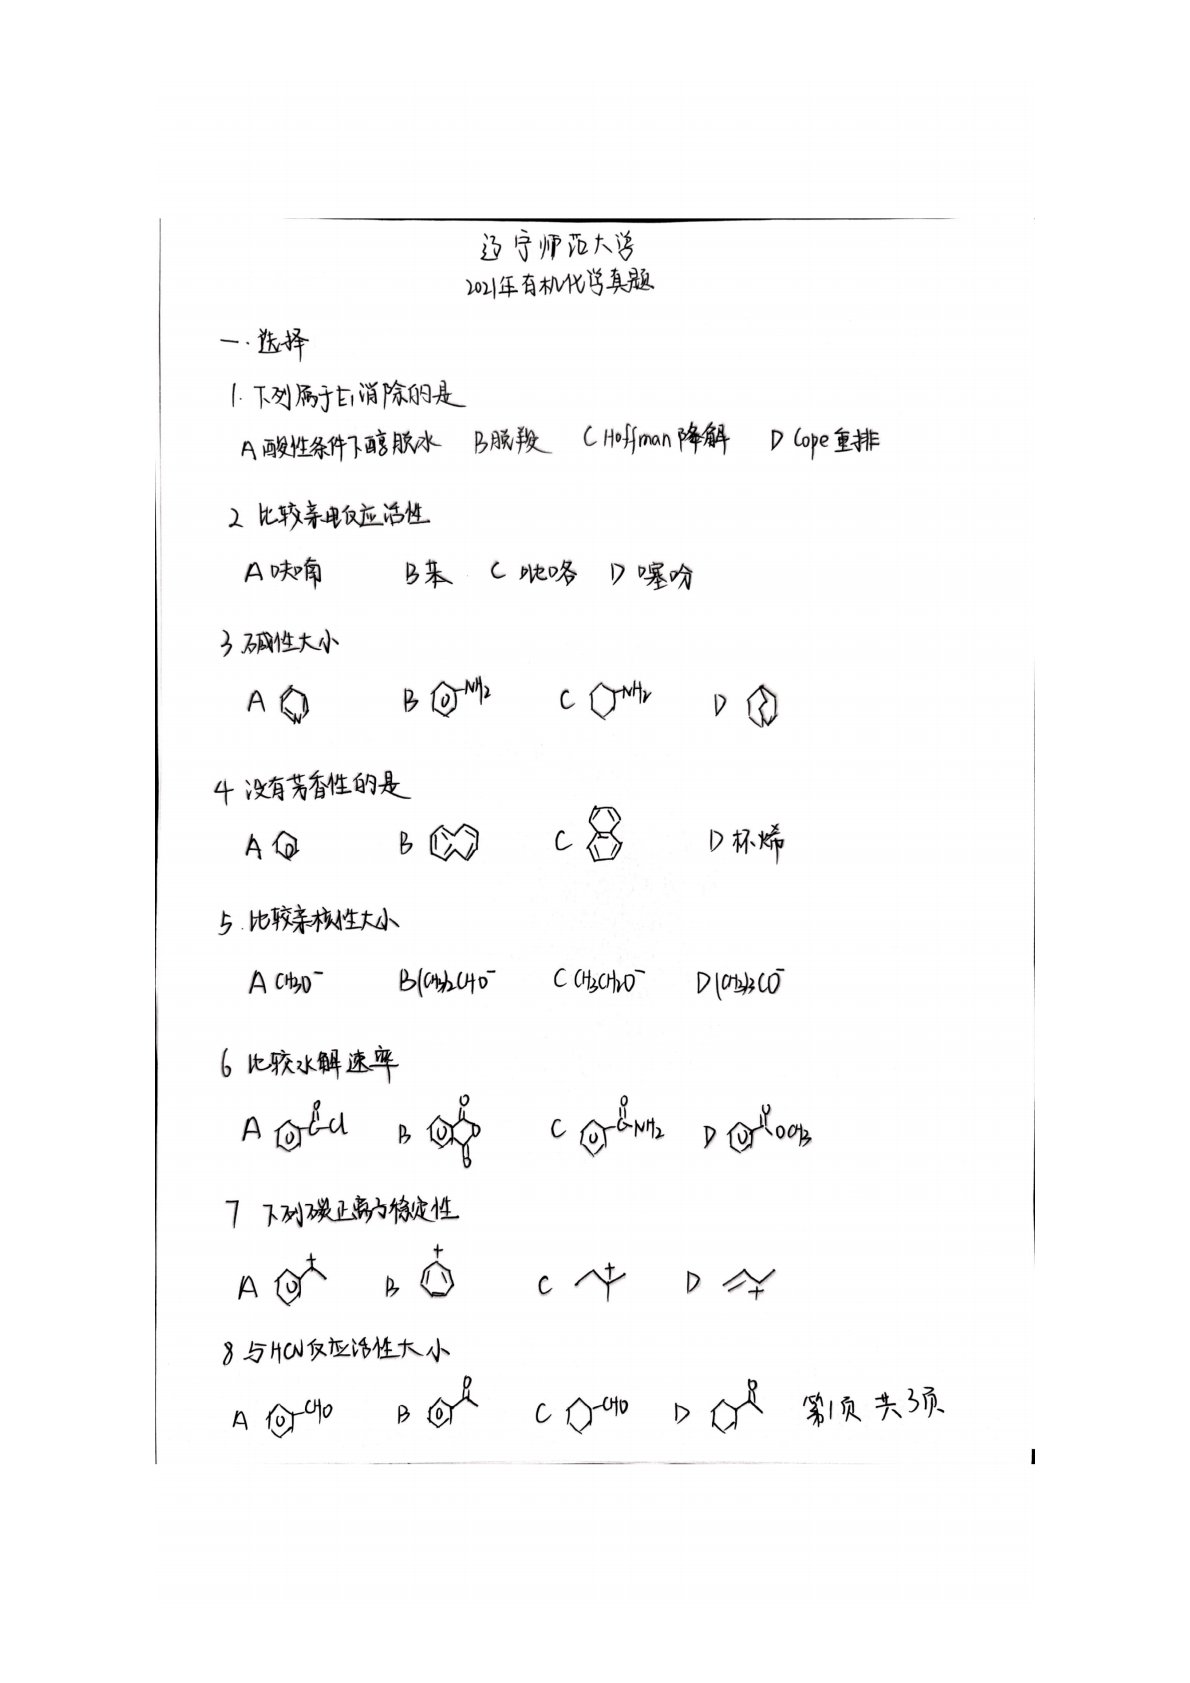 辽宁师范大学
2021年有机化学真题
一.选择
1. 下列属于E1消除的是
A 酸性条件下醇脱水 B 脱羧 C Hoffman降解 D Cope重排
2 比较亲电反应活性
A 呋喃 B 苯 C 吡咯 D 噻吩
3 碱性大小
A N B NH2 C NH2 D
4 没有芳香性的是
A B C D 杯烯
5. 比较亲核性大小
A CH3O⁻ B (CH3)2CHO⁻ C CH3CH2O⁻ D (CH3)3CO⁻
6 比较水解速率
A O C Cl B O O O C O C NH2 D O OCH3
7 下列碳正离子稳定性
A + B + C + D +
8 与HCN反应活性大小
A CHO B O C CHO D O 第1页 共3页